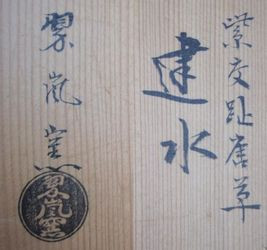 紫交趾唐草
建水
翠嵐窯
翠嵐窯